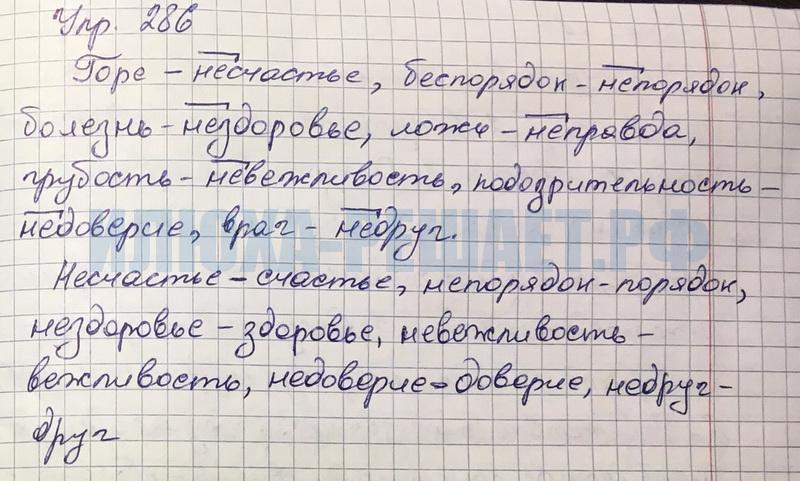 Упр. 286
Горе - несчастье, беспорядок - непорядок,
болезнь - нездоровье, ложь - неправда,
грубость - невежливость, подозрительность -
недоверие, враг - недруг.
ИЛЮХА-РЕШАЕТ.РФ
Несчастье - счастье, непорядок - порядок,
нездоровье - здоровье, невежливость -
вежливость, недоверие - доверие, недруг -
друг